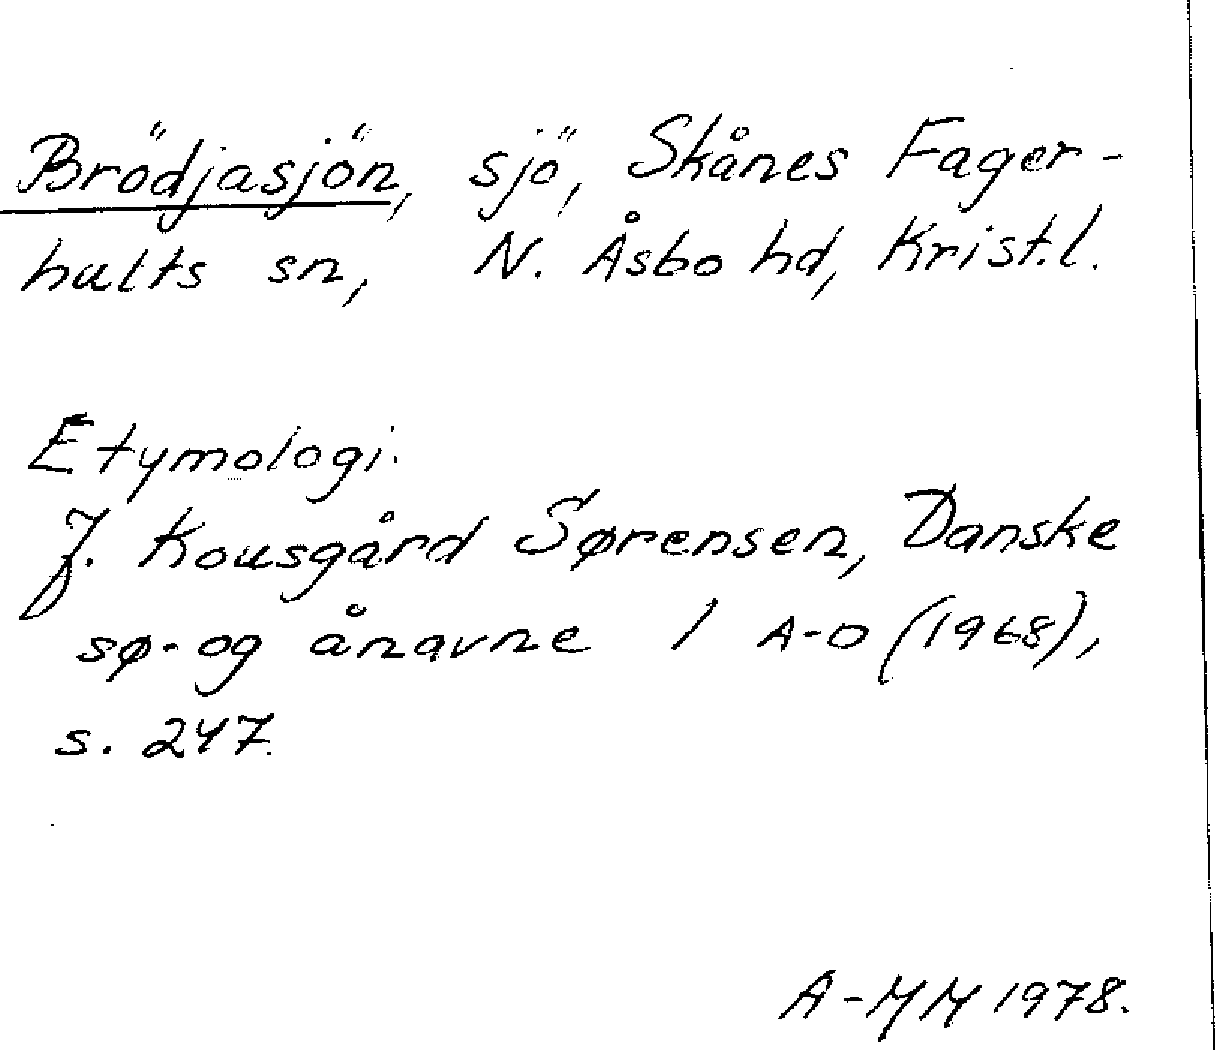 Brödjasjön, sjö, Skånes Fager-
hults sn, N. Åsbo hd, Krist.l.
Etymologi.
J. Kousgård Sørensen, Danske
sø- og ånavne 1 A-D (1968),
s. 247.
A-MM 1978.